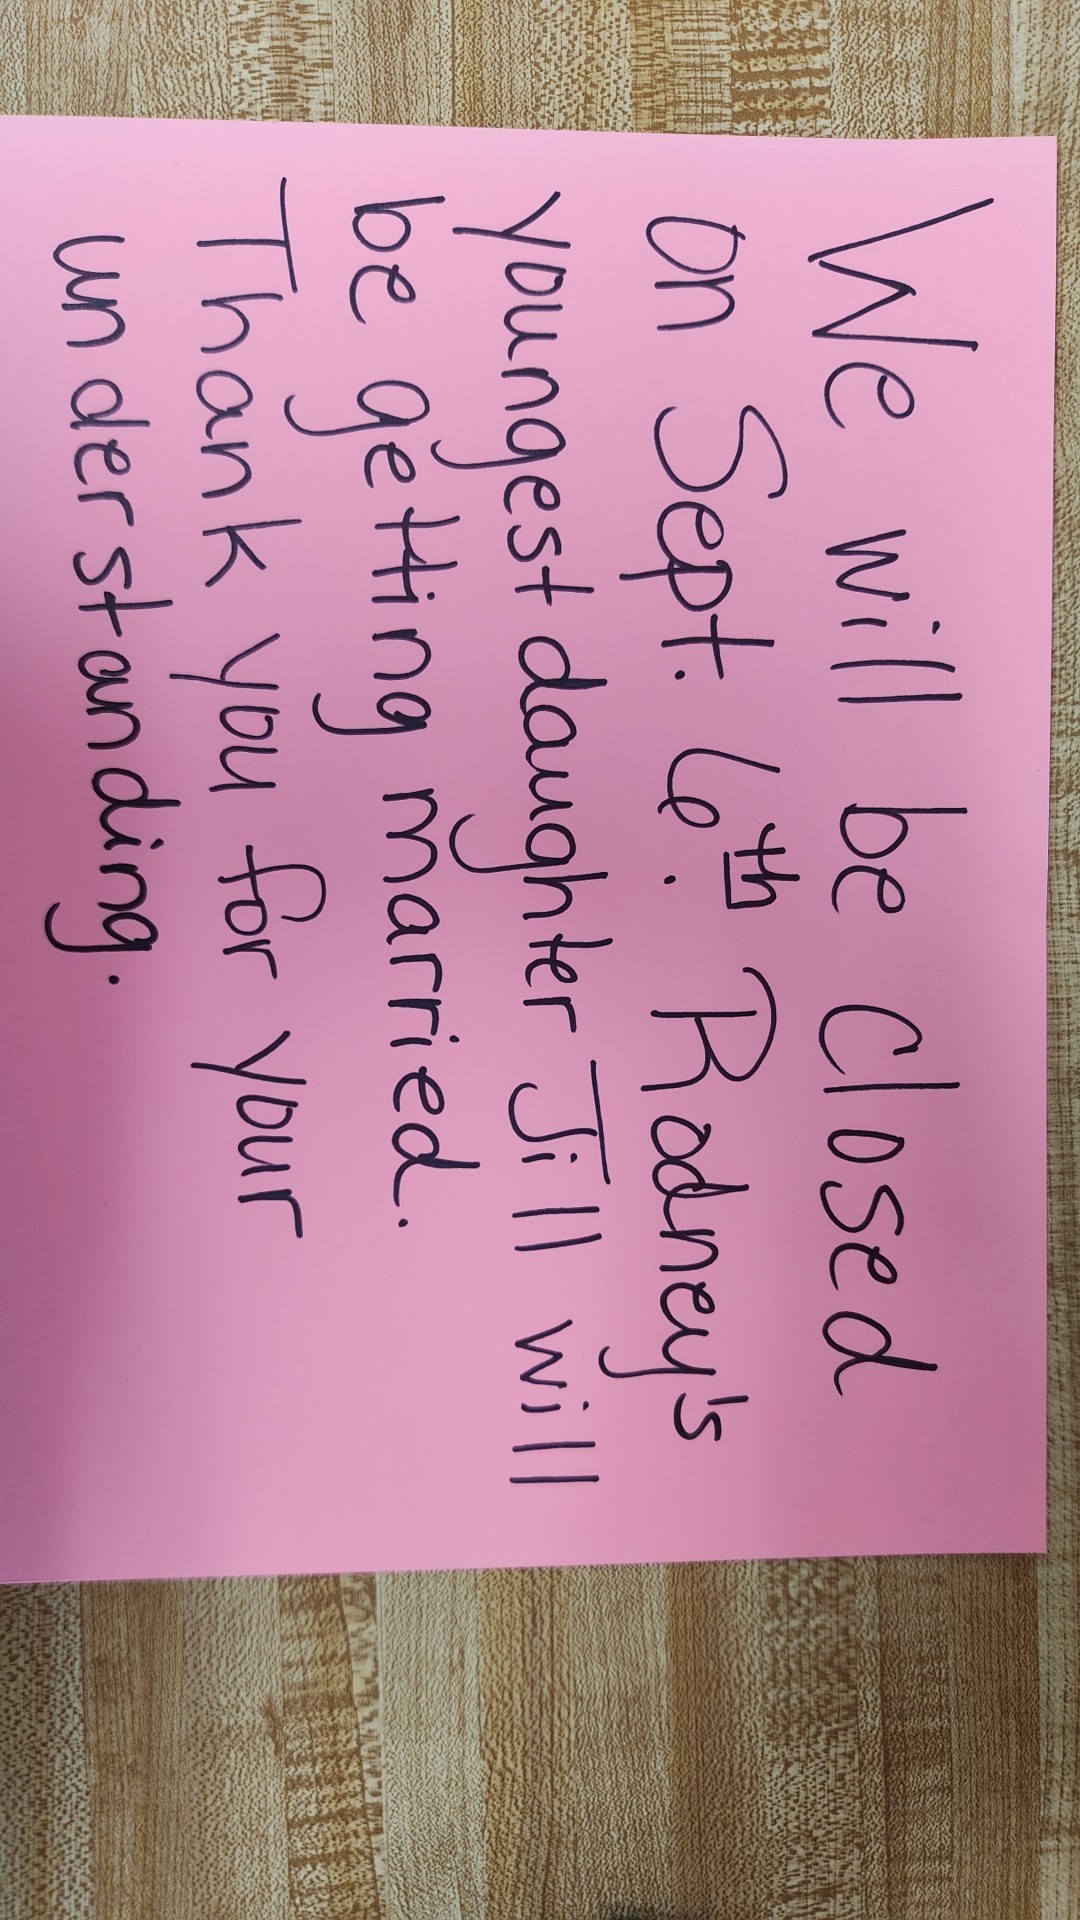 We will be Closed
on Sept. 6th. Rodney's
youngest daughter Jill will
be getting married.
Thank you for your
understanding.